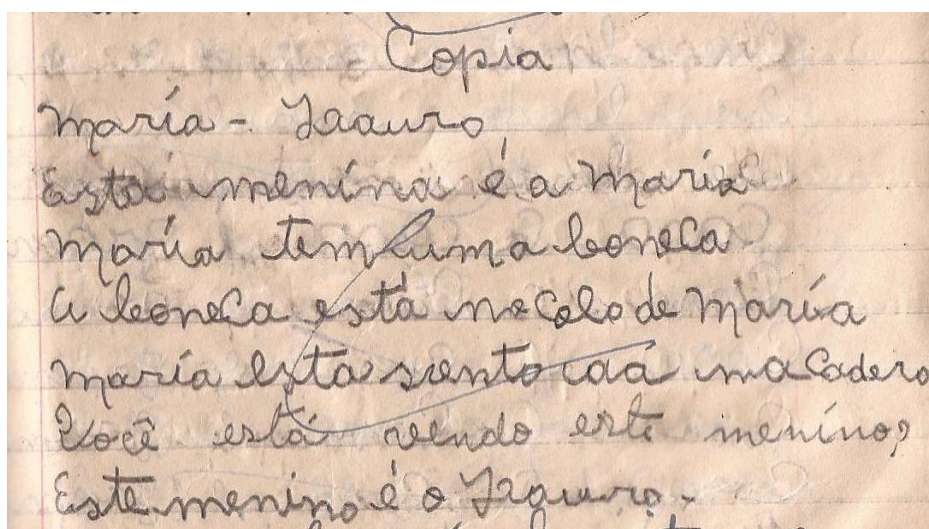 Copia
María -
Esta menína é a María
María tem uma boneca
A boneca está no Colo de María
María esta na Cadera
Você está vendo este meníno?
Este menino é o